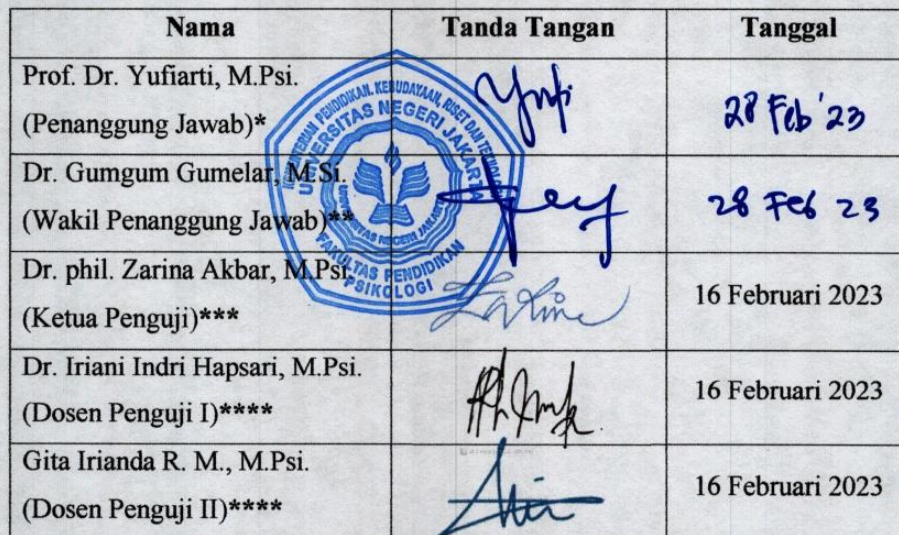 Nama Tanda Tangan Tanggal
Prof. Dr. Yufiarti, M.Psi.
(Penanggung Jawab)*
28 Feb '23
Dr. Gumgum Gumelar, M.Si.
(Wakil Penanggung Jawab)**
28 Feb 23
Dr. phil. Zarina Akbar, M.Psi.
(Ketua Penguji)***
16 Februari 2023
Dr. Iriani Indri Hapsari, M.Psi.
(Dosen Penguji I)****
16 Februari 2023
Gita Irianda R. M., M.Psi.
(Dosen Penguji II)****
16 Februari 2023
KEMENTERIAN PENDIDIKAN, KEBUDAYAAN, RISET DAN TEKNOLOGI
UNIVERSITAS NEGERI JAKARTA
UNIVERSITAS NEGERI JAKARTA
FAKULTAS PENDIDIKAN
PSIKOLOGI